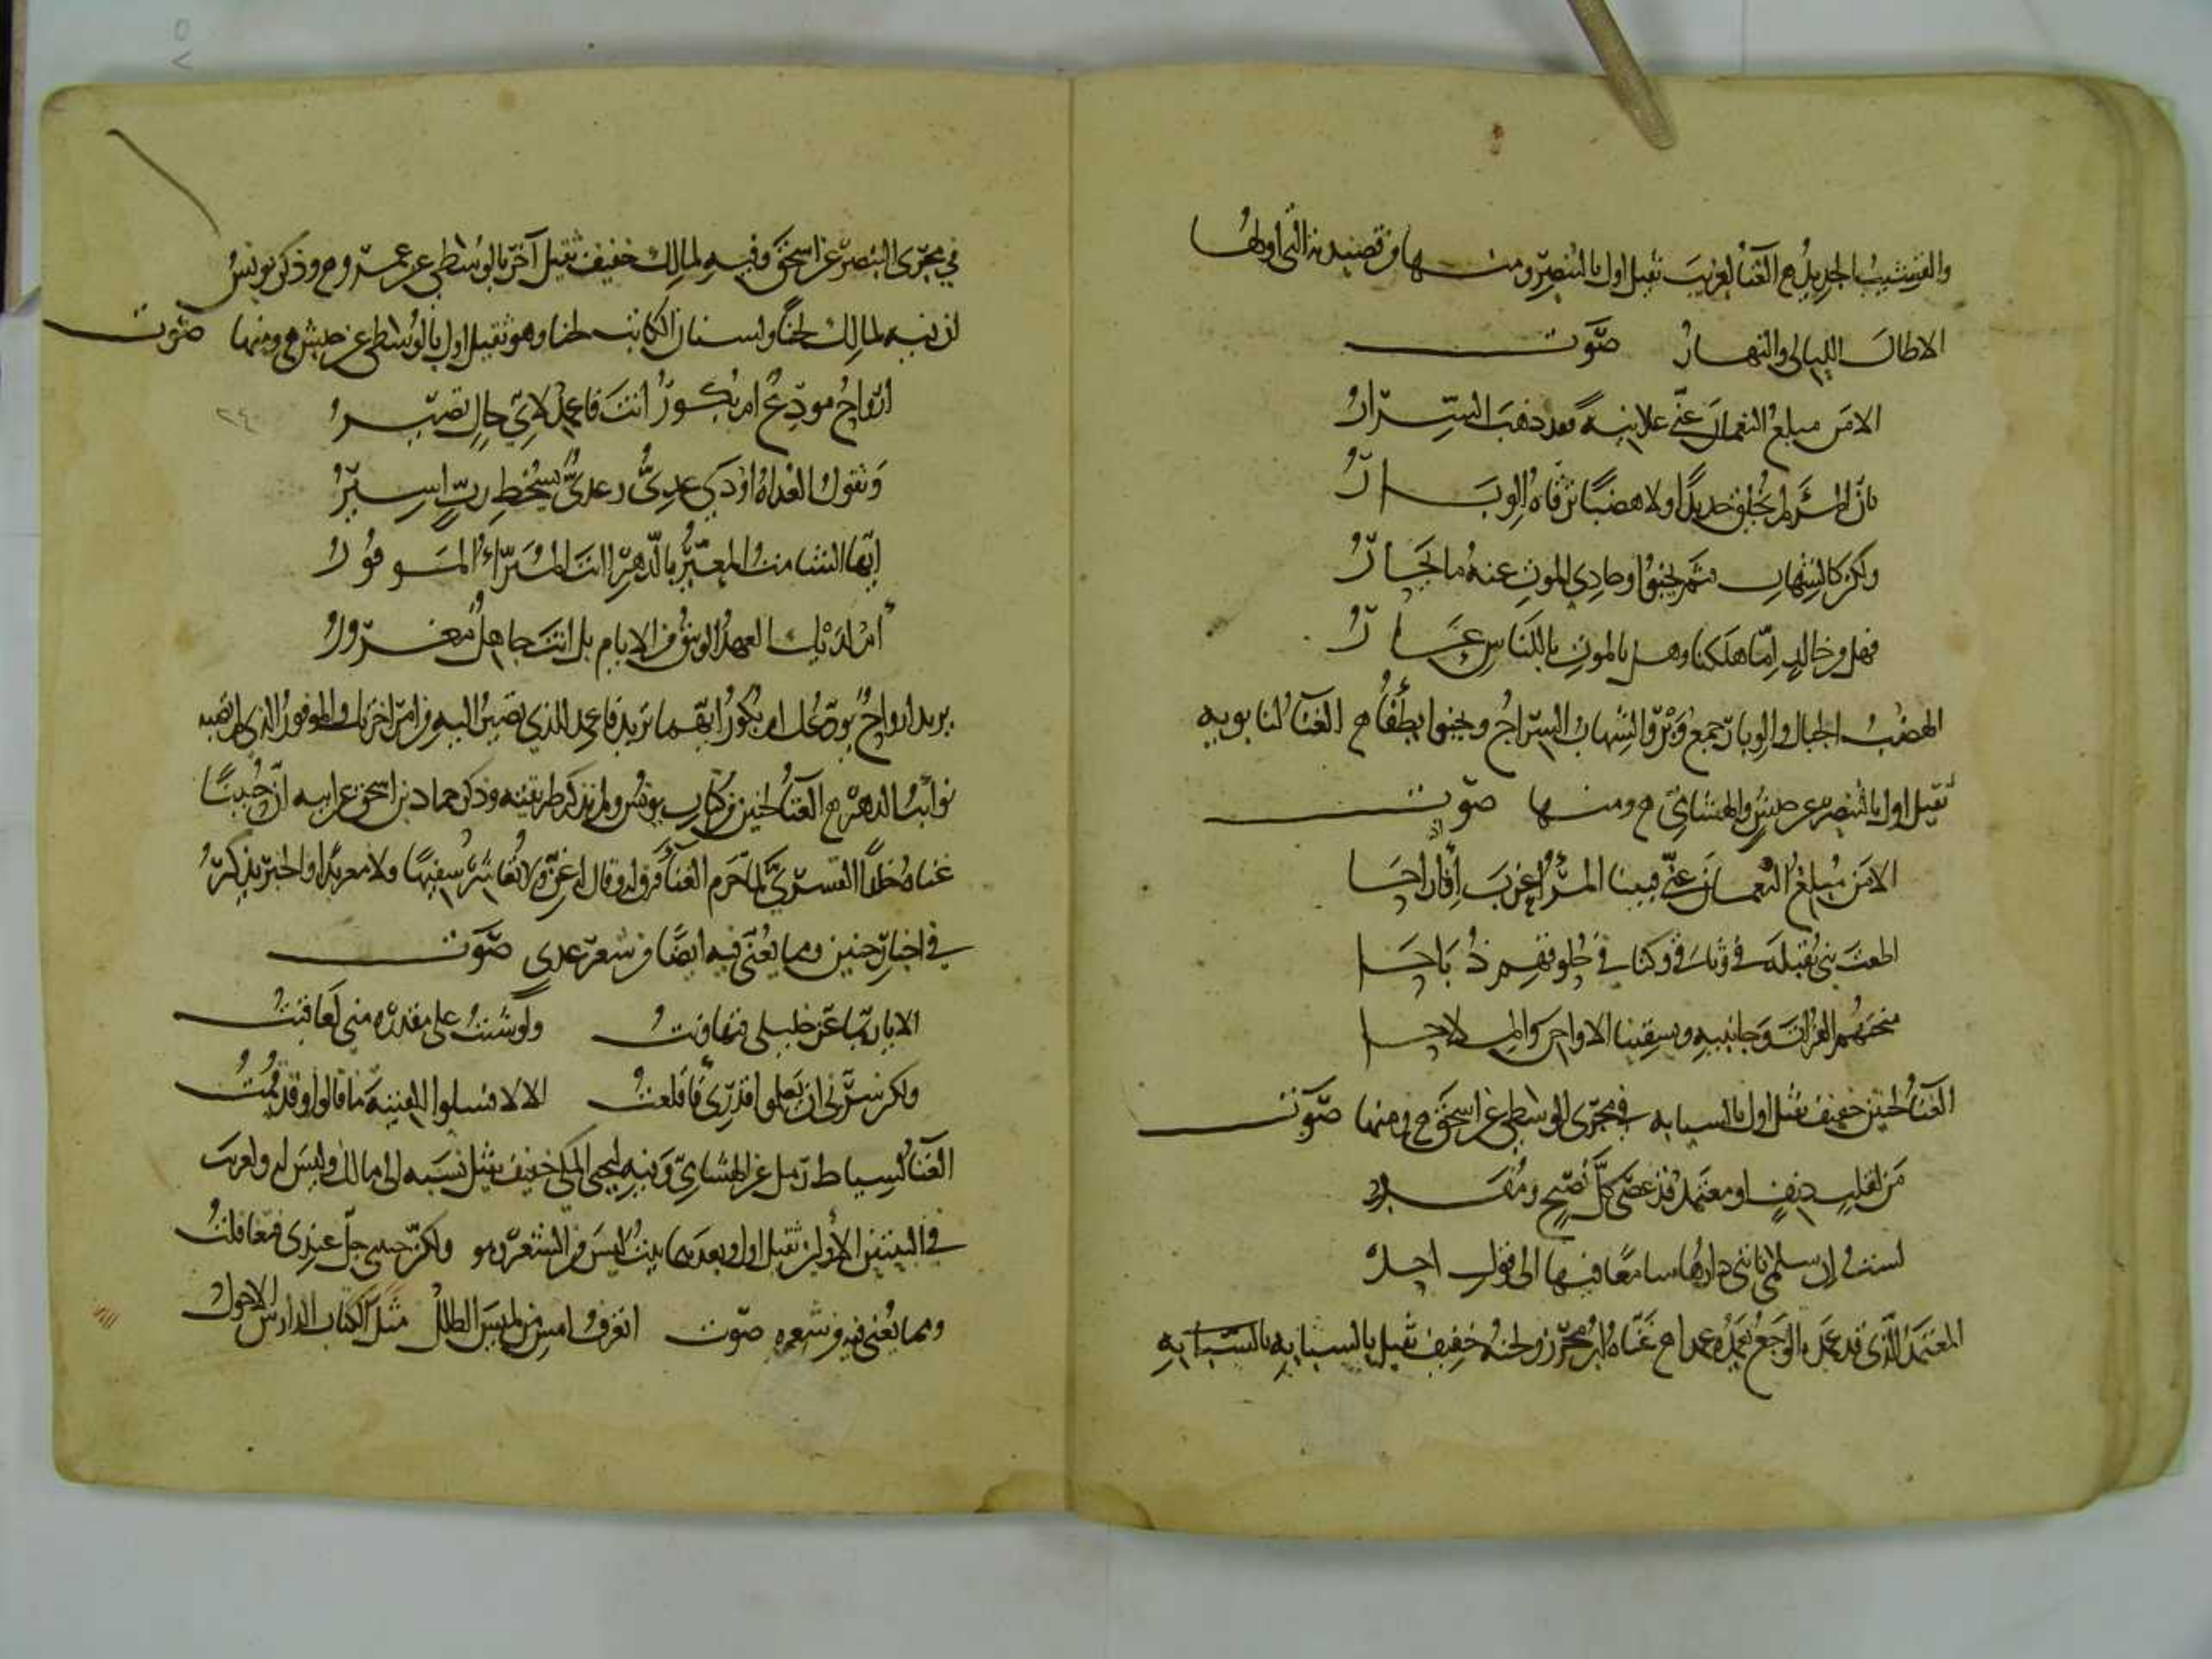 والقشيب الجديد ه الغناء لعريب ثقيل اول بالبنصر ومنها من قصيدته التي اولها
الا طال الليالي والنهار صوت
الا من مبلغ النعمان عني علانية فقد ذهب السرار
بان المرء لم يخلق حديدا ولا هضبا ترقاه الوبار
ولكن كالشهاب فثم يخبو وحادي الموت عنه ما يحار
فهل من خالد اما هلكنا وهل بالموت يا للناس عار
الهضب الجبال والوبار جمع وبر والشهاب السراج ويخبوا يطفا ه الغناء لبابويه
ثقيل اول بالبنصر عن حبش والهشامي ه ومنها صوت
الا من مبلغ النعمان عني فبينا المرء اغرب اذ اراحا
اطعت بني بقيلة في وثاق وكنا في حلوقهم ذباحا
منحتهم الفرات وجانبيه وتسقينا الاواجن والملاحا
الغناء لحنين خفيف ثقيل اول بالسبابه في مجرى الوسطى عن اسحق ه ومنها صوت
من لقلب دنف او معتمد قد عصى كل نصيح ومفد
لست ان سلمى ناتني دارها سامعا فيها الى قول احد
المعتمد الذي قد عمده الوجع يعمده عمدا ه غناه ابن محرز ولحنه خفيف ثقيل بالسبابه بالسبابه
في مجرى البنصر عن اسحق وفيه لمالك خفيف ثقيل آخر بالوسطى عن عمرو ه وذكر يونس
ان فيه لمالك لحنا ولسنان الكاتب لحنا وهو ثقيل اول بالوسطى عن حبش ه ومنها صوت
ارواح مودع ام بكور انت فاعمد لاي حال تصير
٢٤٠
وتقول العداة اودى عدي وعدي بسخط رب اسير
ايها الشامت المعير بالدهر اانت المبرأ الموفور
ام لديك العهد الوثيق من الايام بل انت جاهل مغرور
يريد ارواح نودعك ام بكور ايهما تريد فاعمد للذي تصير اليه من امر اخرتك والموفور الذي لم تصبه
نوائب الدهر ه الغناء لحنين من كتاب يونس ولم يذكر طريقته وذكر حماد بن اسحق عن ابيه ان حنينا
غناه خالدا القسري لما حرم الغناء فرق له وقال له غن ولا تعاشر سفيها ولا معربدا والخبر يذكر
في اخبار حنين ومما يغنى فيه ايضا من شعر عدي صوت
الا يا ربما عز خليلي فتهاونت ولو شئت على مقدرة مني لعاقبت
ولكن سرني ان يعلموا قدري فاقلعت الا لا فسلوا الفتية ما قالوا وقد قمت
الغناء لسياط رمل عن الهشامي وفيه ليحيى المكي خفيف ثقيل نسبه الى مالك وليس له ولعريب
في البيتين الاولين ثقيل اول وبعدهما بيت ليس من الشعر وهو ولكن حبيبي جل عندي فتغافلت
ومما يغنى فيه من شعره صوت اتعرف امس من لميس الطلل مثل الكتاب الدارس الاحول